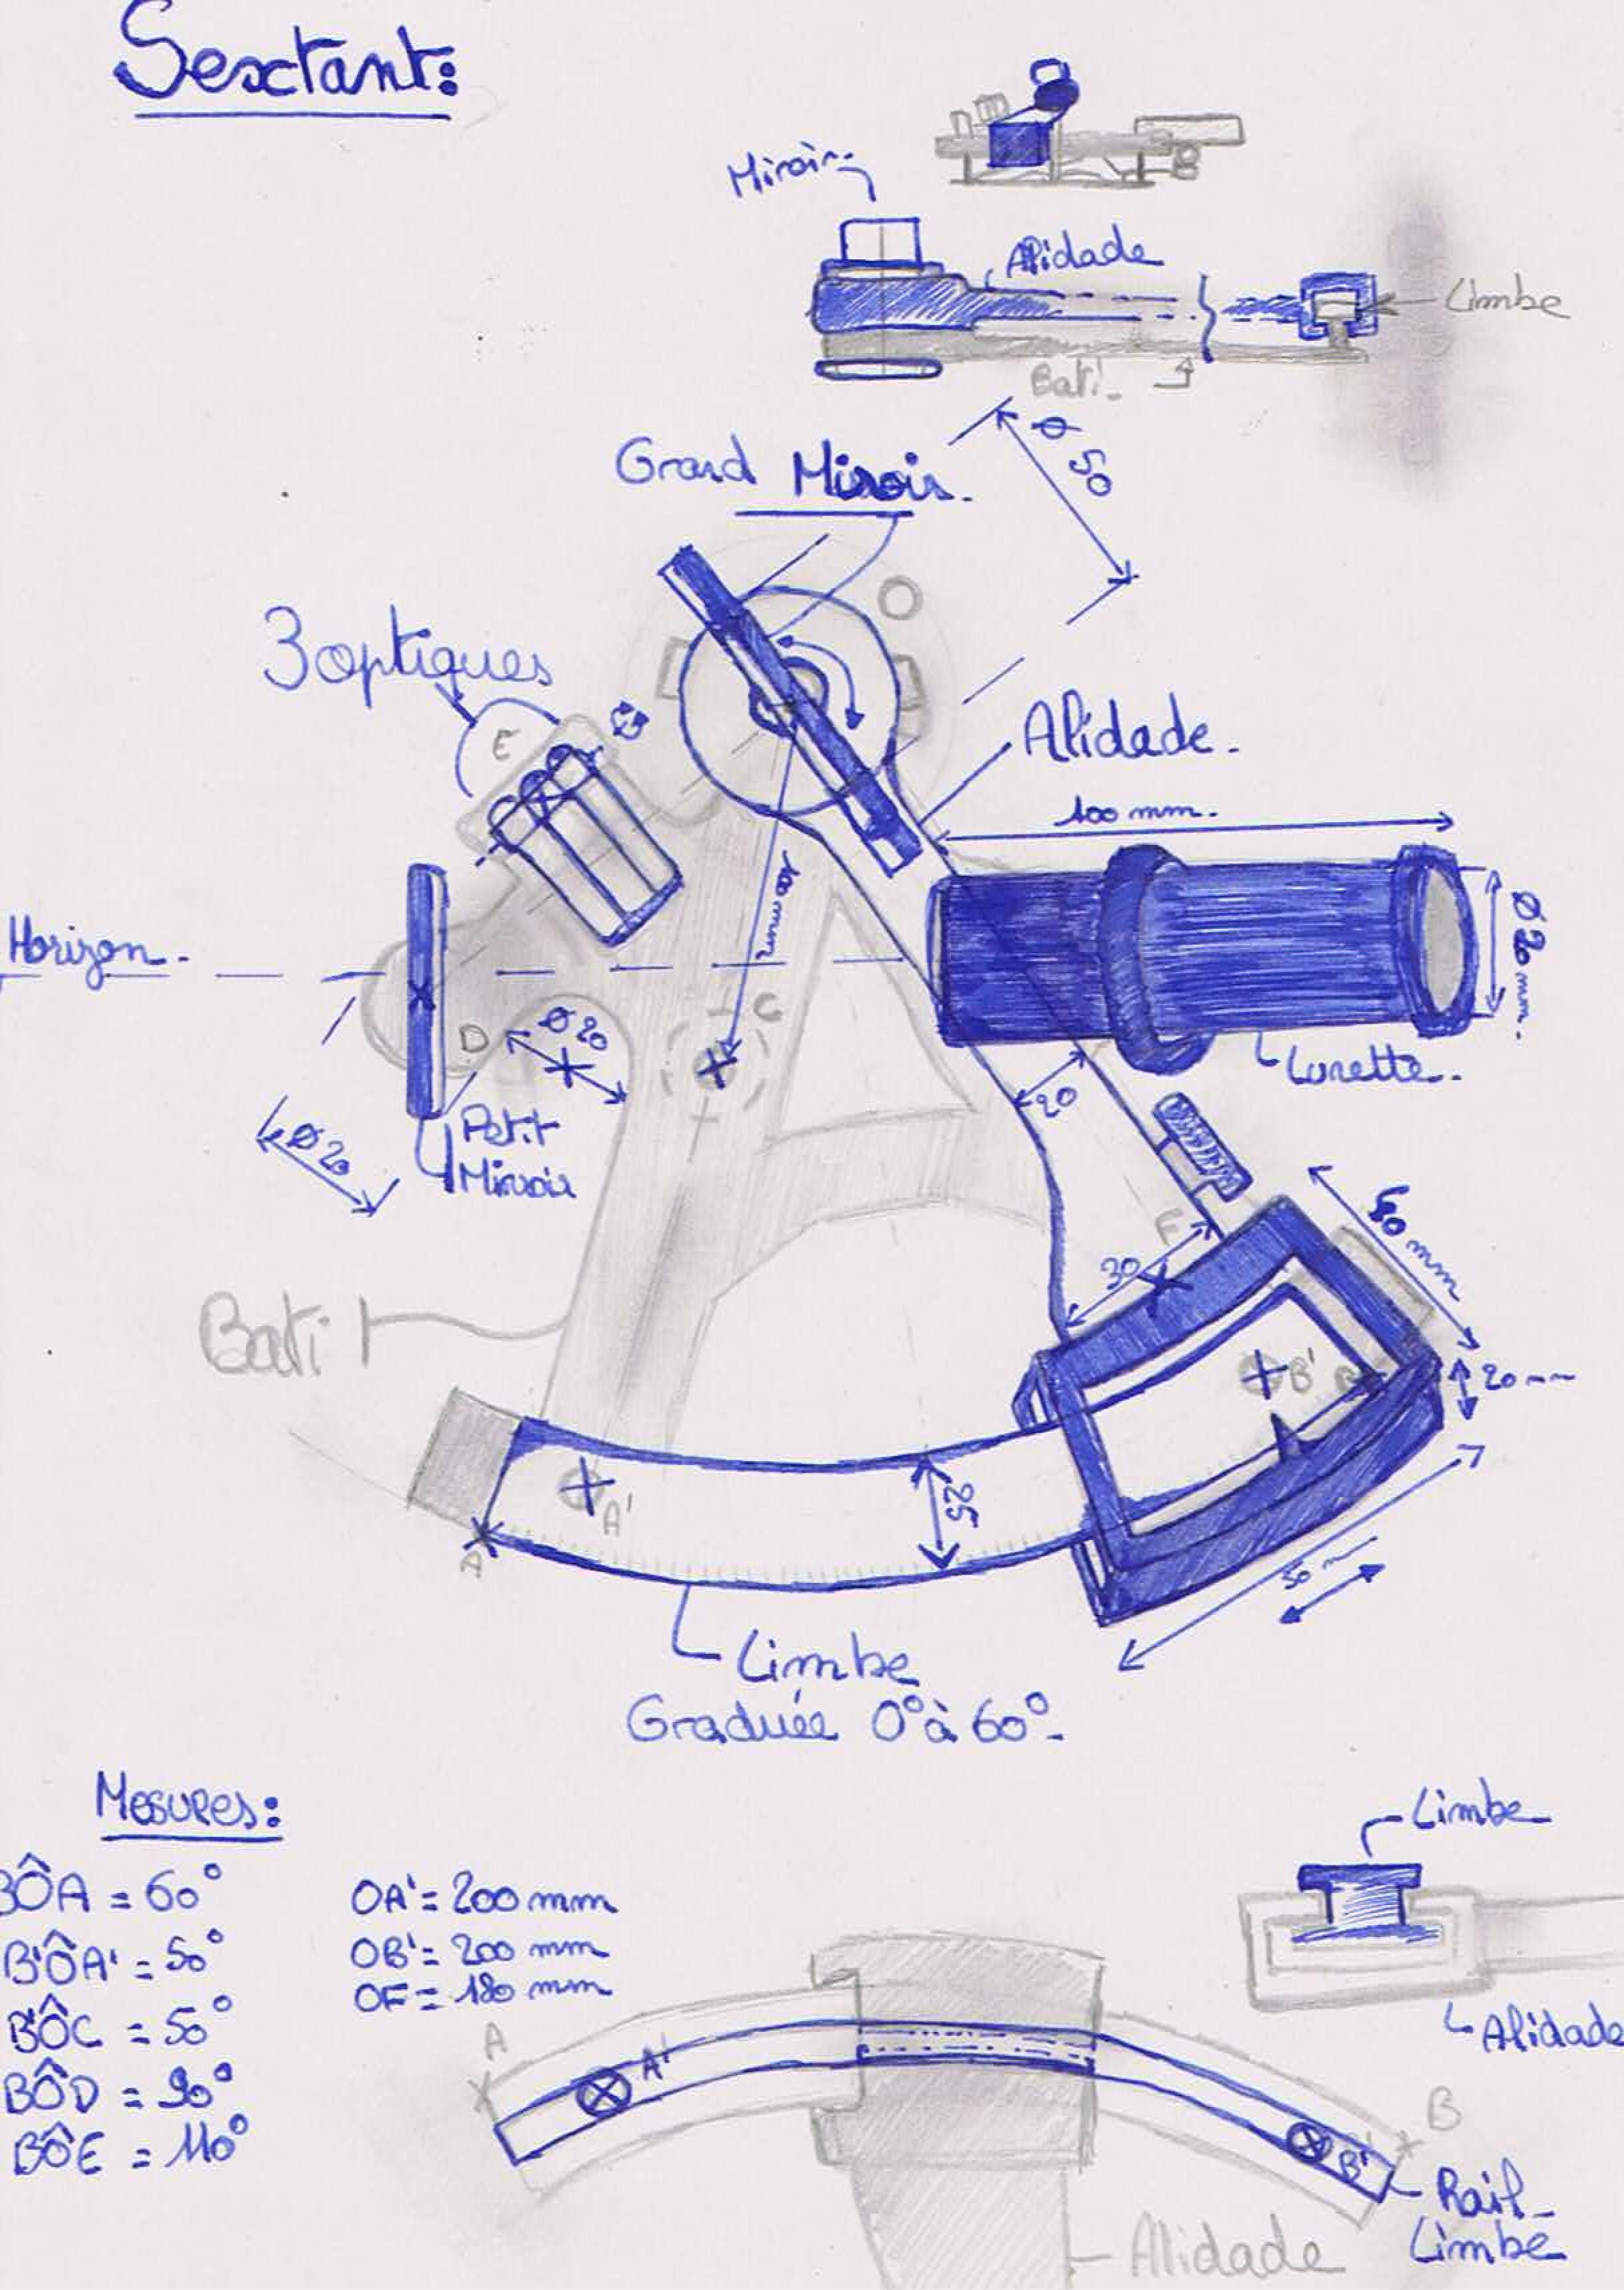 Sextant:
Miroir.
Alidade
Limbe
Bati.
Ø 50
Grand Miroir.
3 optiques
E
Alidade.
100 mm.
100 mm
Ø 20 mm.
Horizon.
C
D
Ø 20
Lunette.
20
Ø 20
Petit
Miroir
F
50 mm
30
Bati
B'
B
20 mm
A'
A
25
50 m
Limbe
Graduée 0° à 60°.
Mesures:
BÔA = 60°
B'ÔA' = 50°
B'ÔC = 50°
BÔD = 90°
BÔE = 110°
OA' = 200 mm
OB' = 200 mm
OF = 180 mm
Limbe
Alidade
A
A'
B
B'
Rail
Limbe
Alidade